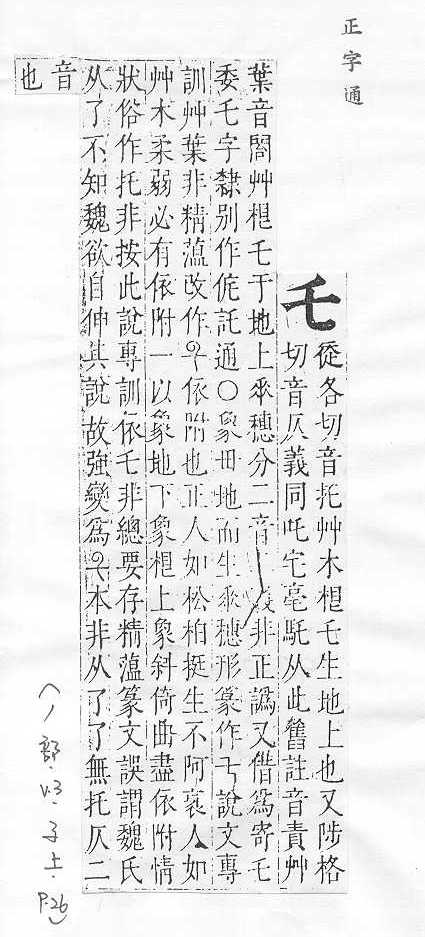 正字通
乇 從各切音托艸木根乇生地上也又陟格
切音仄義同吒宅亳馲从此舊註音責艸
葉音閣艸根乇于地上𠂹穗分二音非正譌又借爲寄乇
委乇字隸別作侂託通〇象毌地而生𠂹穗形篆作乇說文專
訓艸葉非精薀改作依附也正人如松柏挺生不阿裒人如
艸木柔弱必有依附一以象地下象根上象斜倚曲盡依附情
狀俗作托非按此說專訓依乇非總要存精薀篆文誤謂魏氏
从了不知魏欲自伸其說故強變爲本非从了了無托仄二
音也
(丿部.以.子上.P.26)